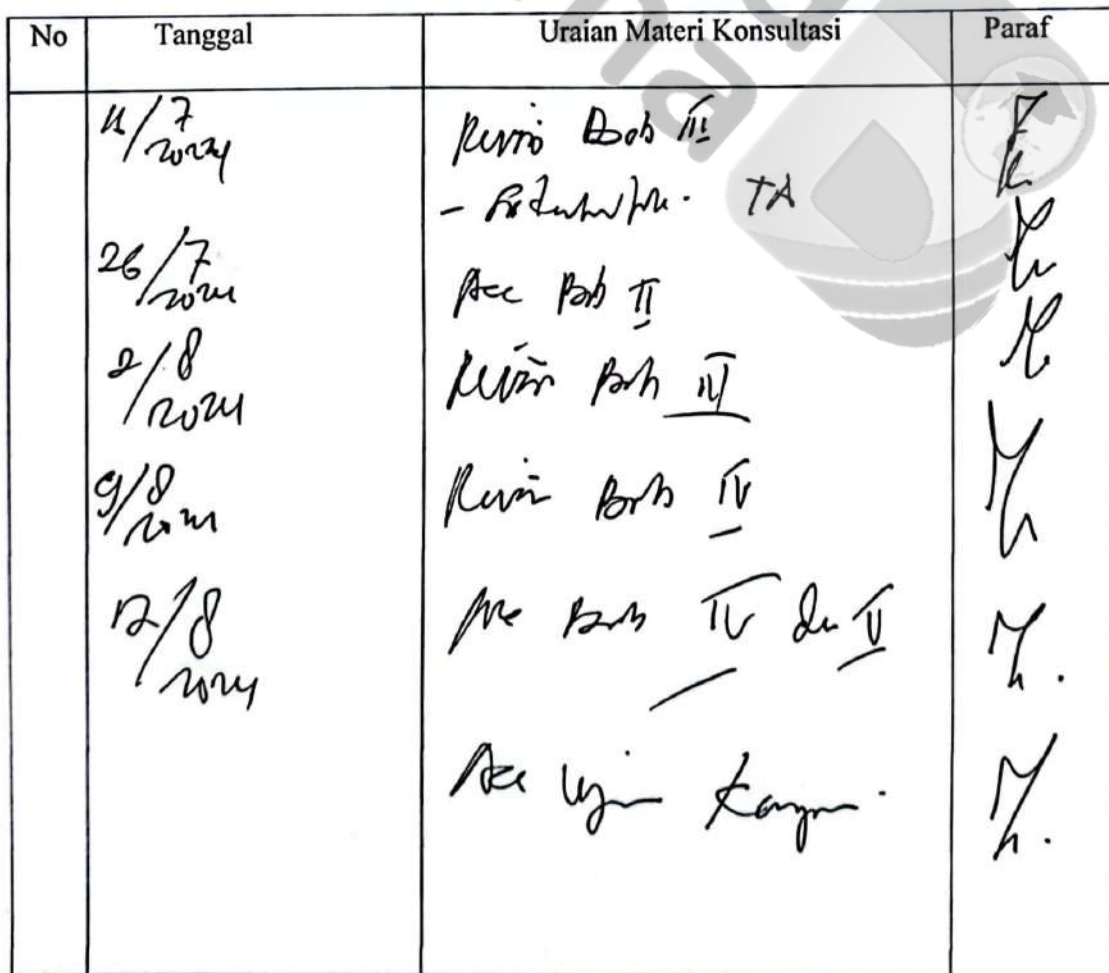 No Tanggal Uraian Materi Konsultasi Paraf
11/7 2024 Revisi Bab III
- TA
26/7 2024 Acc Bab II
2/8 2024 Revisi Bab
9/8 2024 Revisi Bab IV
12/8 2024 Acc Bab IV dan V
Acc Ujian